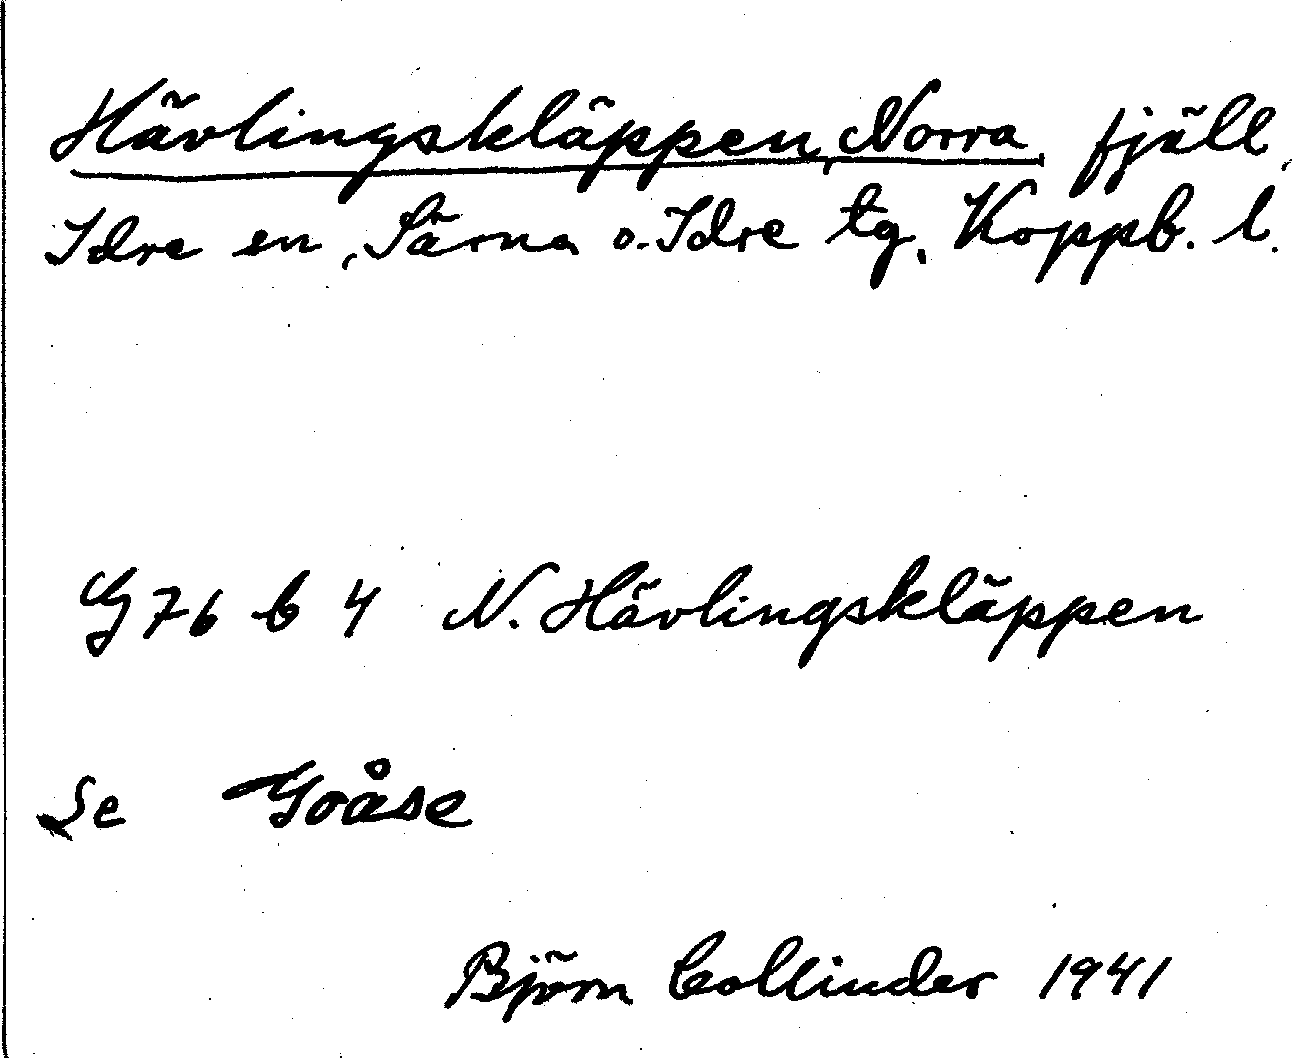 Hävlingskläppen, Norra, fjäll,
Idre sn, Särna o. Idre tg, Koppb. l.
G 76 b 4 N. Hävlingskläppen
Se Goåse
Björn Collinder 1941